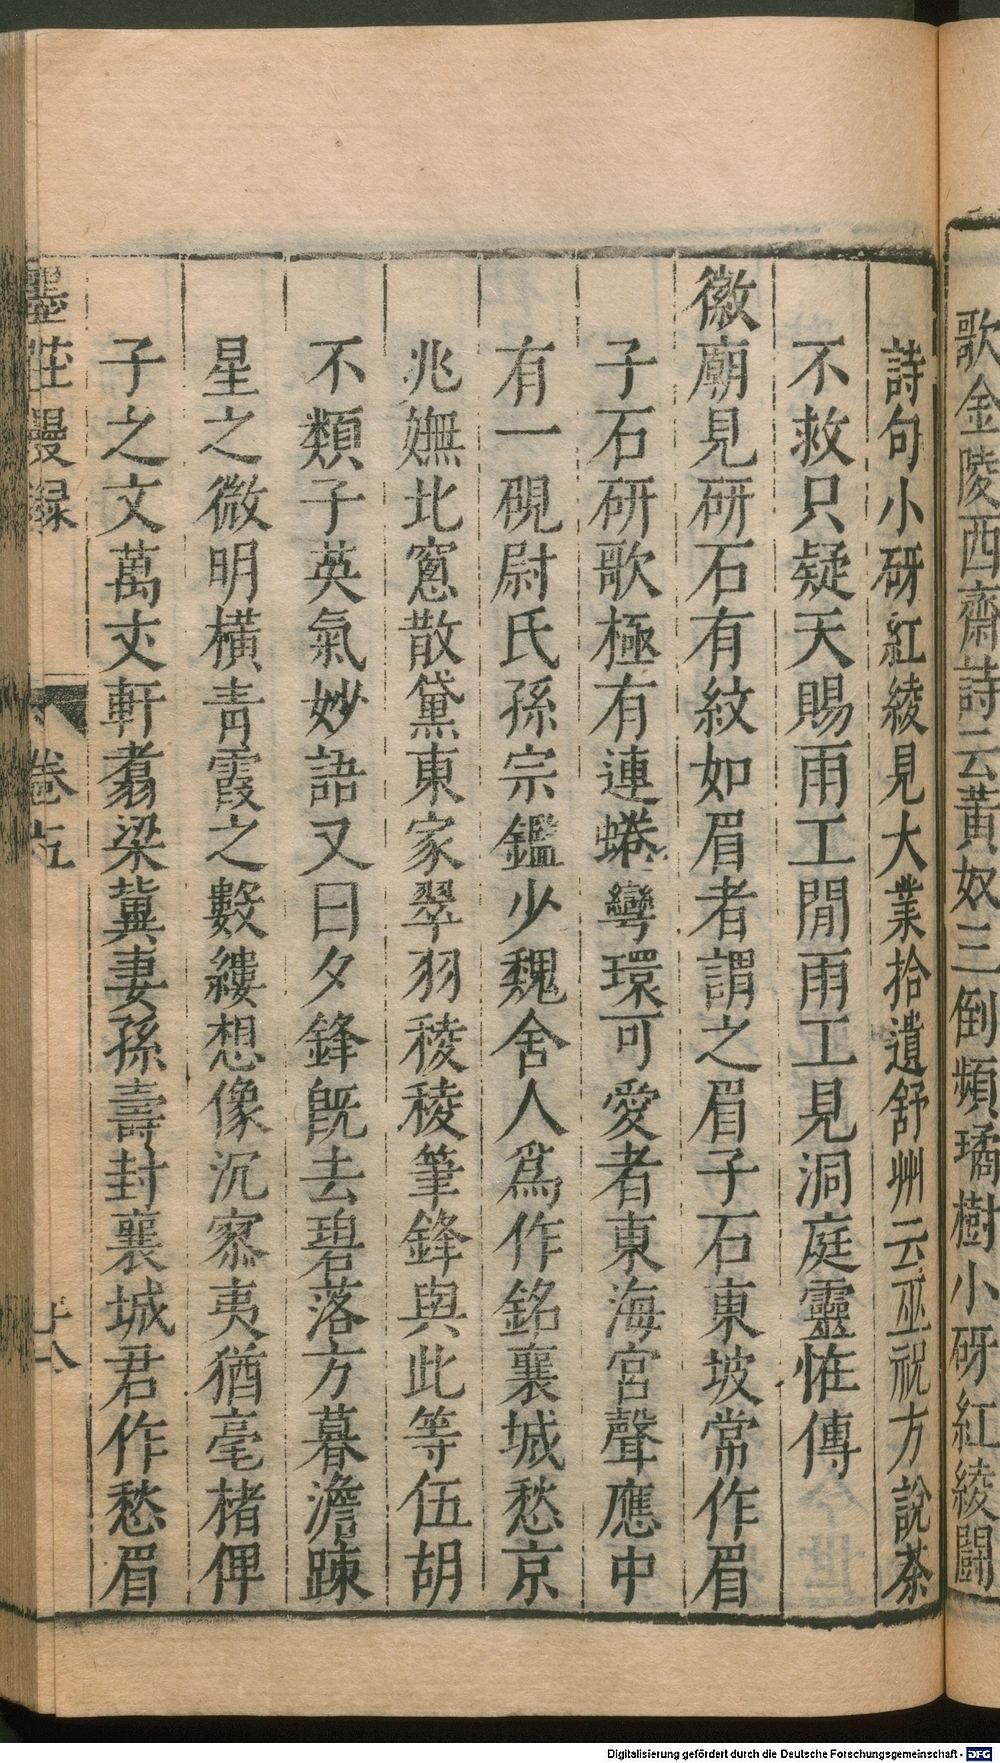 歌金陵西齋詩云黃奴三倒頻璚樹小砑紅綾鬬
詩句小砑紅綾見大業拾遺舒州云巫祝方說茶
不救只疑天賜雨工閒雨工見洞庭靈恠傳
徽廟見研石有紋如眉者謂之眉子石東坡常作眉
子石研歌極有連蜷彎環可愛者東海宮聲應中
有一硯尉氏孫宗鑑少魏舍人爲作銘襄城愁京
兆嫵北窻散黛東家翠羽稜稜筆鋒與此等伍胡
不類子英氣妙語又曰夕鋒旣去碧落方暮澹踈
星之微明橫青霞之數縷想像沉寥夷猶毫楮俾
子之文萬丈軒翥梁冀妻孫壽封襄城君作愁眉
墨莊漫録 卷五 十八
Digitalisierung gefördert durch die Deutsche Forschungsgemeinschaft - DFG